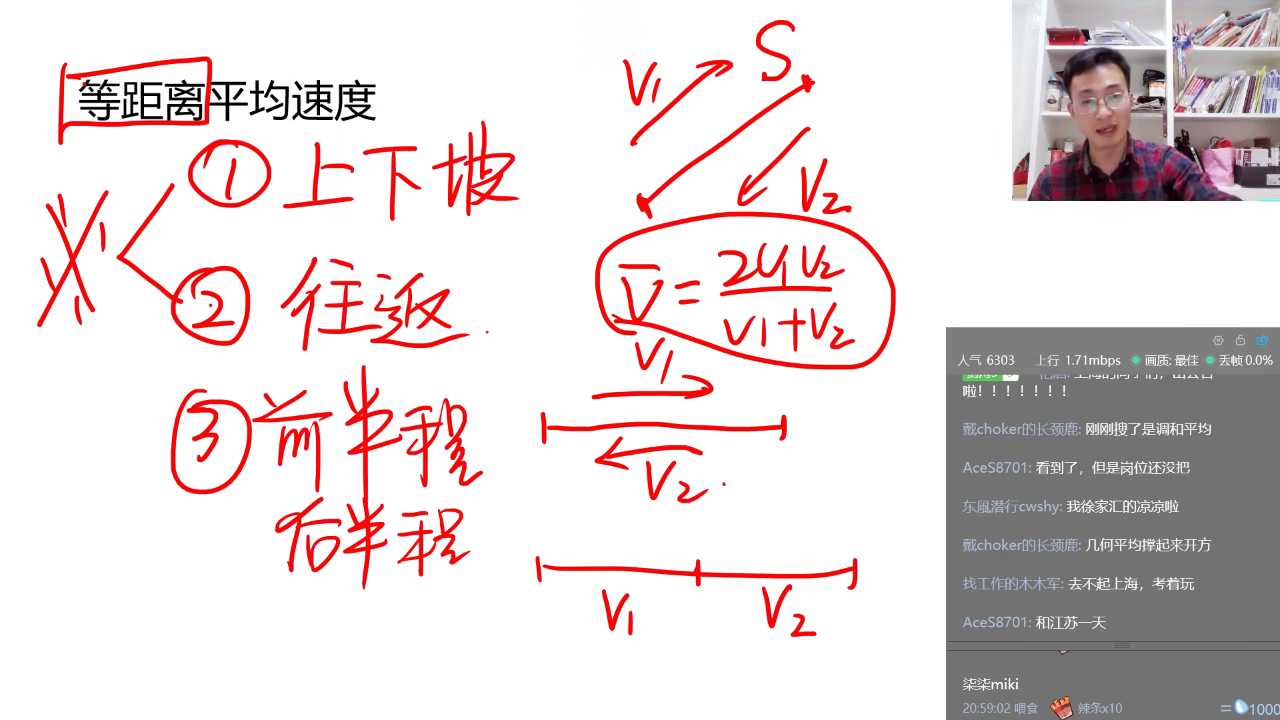 等距离平均速度
① 上下坡
② 往返
③ 前半程
后半程
S
V1
V2
V̄ = 2V1V2 / V1+V2
V1
V2
V1 V2
人气 6303 上行 1.71mbps 画质: 最佳 丢帧 0.0%
啦！！！！！！！
戴choker的长颈鹿: 刚刚搜了是调和平均
AceS8701: 看到了，但是岗位还没把
东風潜行cwshy: 我徐家汇的凉凉啦
戴choker的长颈鹿: 几何平均撑起来开方
找工作的木木军: 去不起上海，考着玩
AceS8701: 和江苏一天
柒柒miki
20:59:02 喂食 辣条x10 = 1000